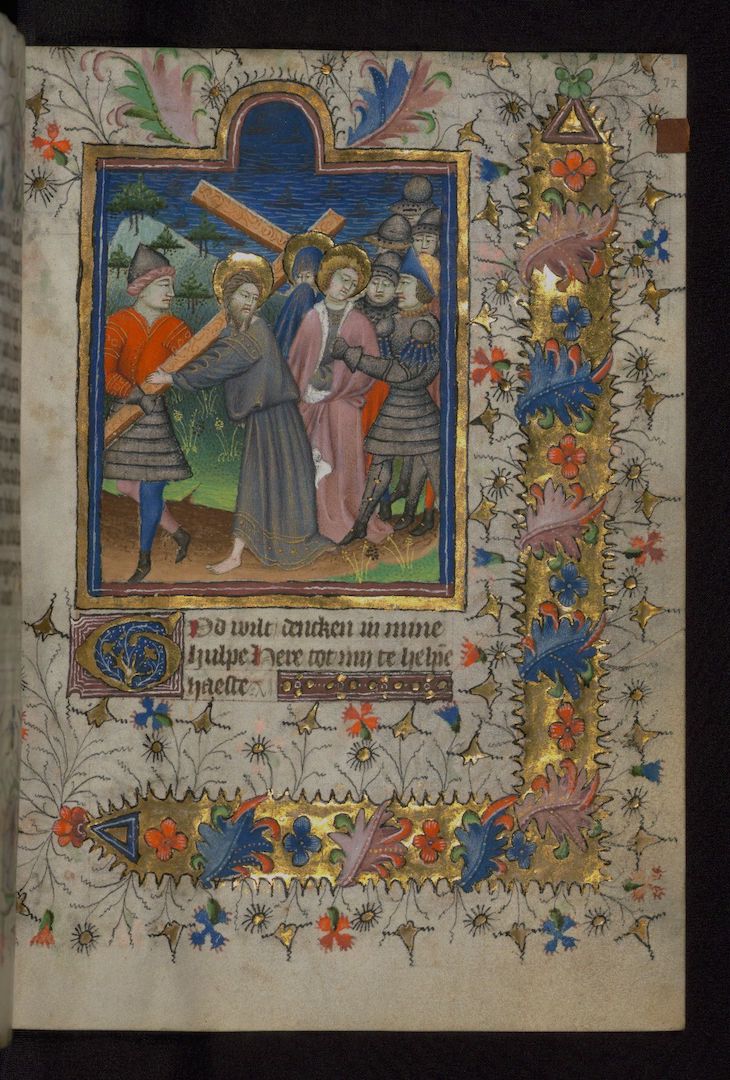 72
God wilt dencken in mine
hulpe Here tot mij te helpē
haeste